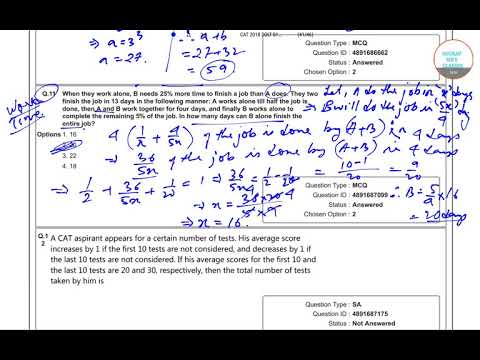 CAT 2018 2017 Sl... (41/46)
⇒ a = 3³
a = 27.
∴ a+b
= 27+32
= 59
Question Type : MCQ
Question ID : 4891686662
Status : Answered
Chosen Option : 2
Work & Time
Q.11 When they work alone, B needs 25% more time to finish a job than A does. They two
finish the job in 13 days in the following manner: A works alone till half the job is
done, then A and B work together for four days, and finally B works alone to
complete the remaining 5% of the job. In how many days can B alone finish the
entire job?
Let, A do the job in x days
⇒ B will do the job in (5x/4) days
Options 1. 16
3. 22
4. 18
4(1/x + 4/5x) of the job is done by (A+B) in 4 days
⇒ 36/5x of the job is done by (A+B) in 4 days
⇒ 1/2 + 36/5x + 1/20 = 1 ⇒ 36/5x = 1/2 - 1/20 = 10-1/20 = 9/20
⇒ x = 36×20/5×9
⇒ x = 16.
∴ B = 5/4 × 16
= 20 days
Question Type : MCQ
Question ID : 4891687099
Status : Answered
Chosen Option : 2
Q.1
2
A CAT aspirant appears for a certain number of tests. His average score
increases by 1 if the first 10 tests are not considered, and decreases by 1 if
the last 10 tests are not considered. If his average scores for the first 10 and
the last 10 tests are 20 and 30, respectively, then the total number of tests
taken by him is
Question Type : SA
Question ID : 4891687175
Status : Not Answered